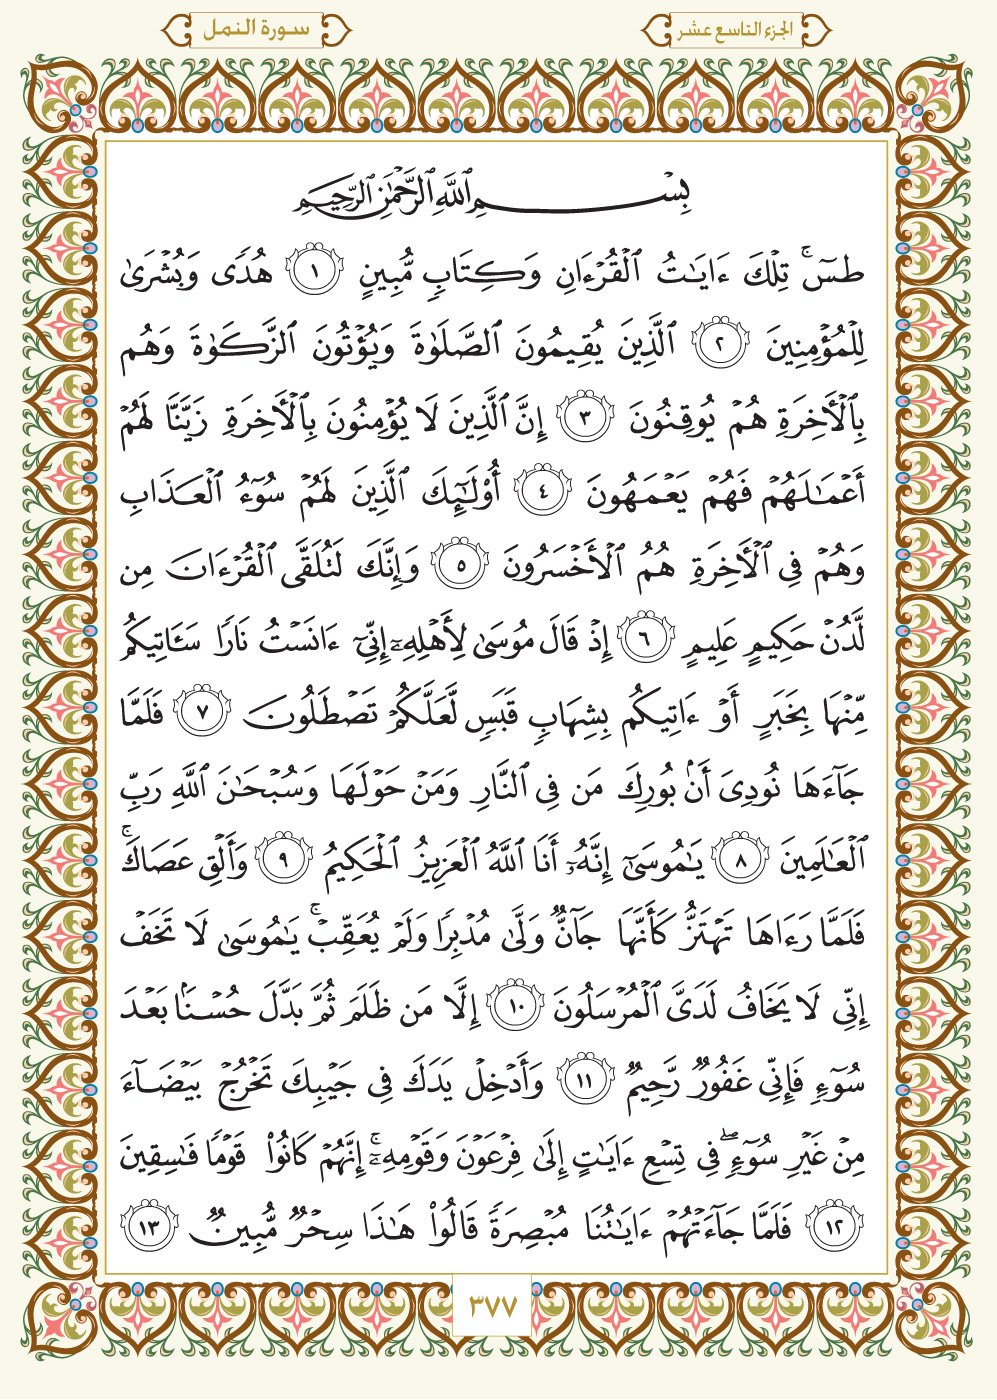 الجزء التاسع عشر
سورة النمل
بِسْمِ ٱللَّهِ ٱلرَّحْمَٰنِ ٱلرَّحِيمِ
طسٓ ۚ تِلْكَ ءَايَٰتُ ٱلْقُرْءَانِ وَكِتَابٍ مُّبِينٍ ١ هُدًى وَبُشْرَىٰ
لِلْمُؤْمِنِينَ ٢ ٱلَّذِينَ يُقِيمُونَ ٱلصَّلَوٰةَ وَيُؤْتُونَ ٱلزَّكَوٰةَ وَهُم
بِٱلْأَخِرَةِ هُمْ يُوقِنُونَ ٣ إِنَّ ٱلَّذِينَ لَا يُؤْمِنُونَ بِٱلْأَخِرَةِ زَيَّنَّا لَهُمْ
أَعْمَٰلَهُمْ فَهُمْ يَعْمَهُونَ ٤ أُو۟لَٰٓئِكَ ٱلَّذِينَ لَهُمْ سُوٓءُ ٱلْعَذَابِ
وَهُمْ فِى ٱلْأَخِرَةِ هُمُ ٱلْأَخْسَرُونَ ٥ وَإِنَّكَ لَتُلَقَّى ٱلْقُرْءَانَ مِن
لَّدُنْ حَكِيمٍ عَلِيمٍ ٦ إِذْ قَالَ مُوسَىٰ لِأَهْلِهِۦٓ إِنِّىٓ ءَانَسْتُ نَارًا سَـَٔاتِيكُم
مِّنْهَا بِخَبَرٍ أَوْ ءَاتِيكُم بِشِهَابٍ قَبَسٍ لَّعَلَّكُمْ تَصْطَلُونَ ٧ فَلَمَّا
جَآءَهَا نُودِىَ أَنۢ بُورِكَ مَن فِى ٱلنَّارِ وَمَنْ حَوْلَهَا وَسُبْحَٰنَ ٱللَّهِ رَبِّ
ٱلْعَٰلَمِينَ ٨ يَٰمُوسَىٰٓ إِنَّهُۥٓ أَنَا ٱللَّهُ ٱلْعَزِيزُ ٱلْحَكِيمُ ٩ وَأَلْقِ عَصَاكَ ۚ
فَلَمَّا رَءَاهَا تَهْتَزُّ كَأَنَّهَا جَآنٌّ وَلَّىٰ مُدْبِرًا وَلَمْ يُعَقِّبْ ۚ يَٰمُوسَىٰ لَا تَخَفْ
إِنِّى لَا يَخَافُ لَدَىَّ ٱلْمُرْسَلُونَ ١٠ إِلَّا مَن ظَلَمَ ثُمَّ بَدَّلَ حُسْنًۢا بَعْدَ
سُوٓءٍ فَإِنِّى غَفُورٌ رَّحِيمٌ ١١ وَأَدْخِلْ يَدَكَ فِى جَيْبِكَ تَخْرُجْ بَيْضَآءَ
مِنْ غَيْرِ سُوٓءٍ ۖ فِى تِسْعِ ءَايَٰتٍ إِلَىٰ فِرْعَوْنَ وَقَوْمِهِۦٓ ۚ إِنَّهُمْ كَانُوا۟ قَوْمًا فَٰسِقِينَ
١٢ فَلَمَّا جَآءَتْهُمْ ءَايَٰتُنَا مُبْصِرَةً قَالُوا۟ هَٰذَا سِحْرٌ مُّبِينٌ ١٣
٣٧٧